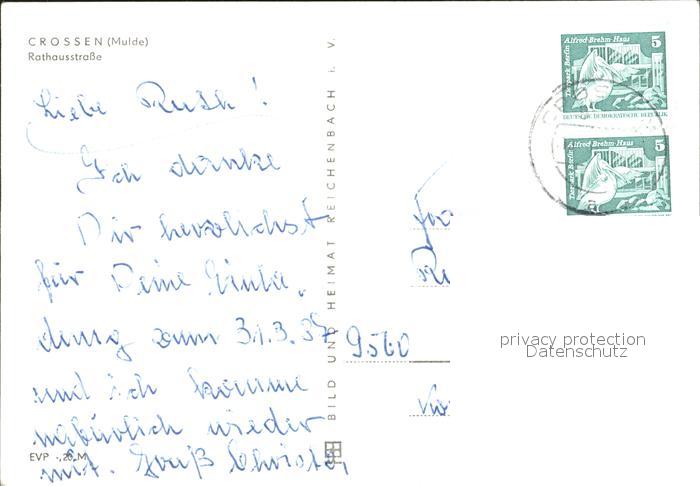 CROSSEN (Mulde)
Rathausstraße
Liebe Ruth!
Ich danke
Dir herzlichst
für Deine Einla-
dung zum 31.3.87
und ich komme
natürlich wieder
mit. Gruß Christa,
EVP -,20 M
BILD UND HEIMAT REICHENBACH i. V.
Alfred-Brehm-Haus 5
Tierpark Berlin
DEUTSCHE DEMOKRATISCHE REPUBLIK
Alfred-Brehm-Haus 5
Tierpark Berlin
Ru
9560
privacy protection
Datenschutz